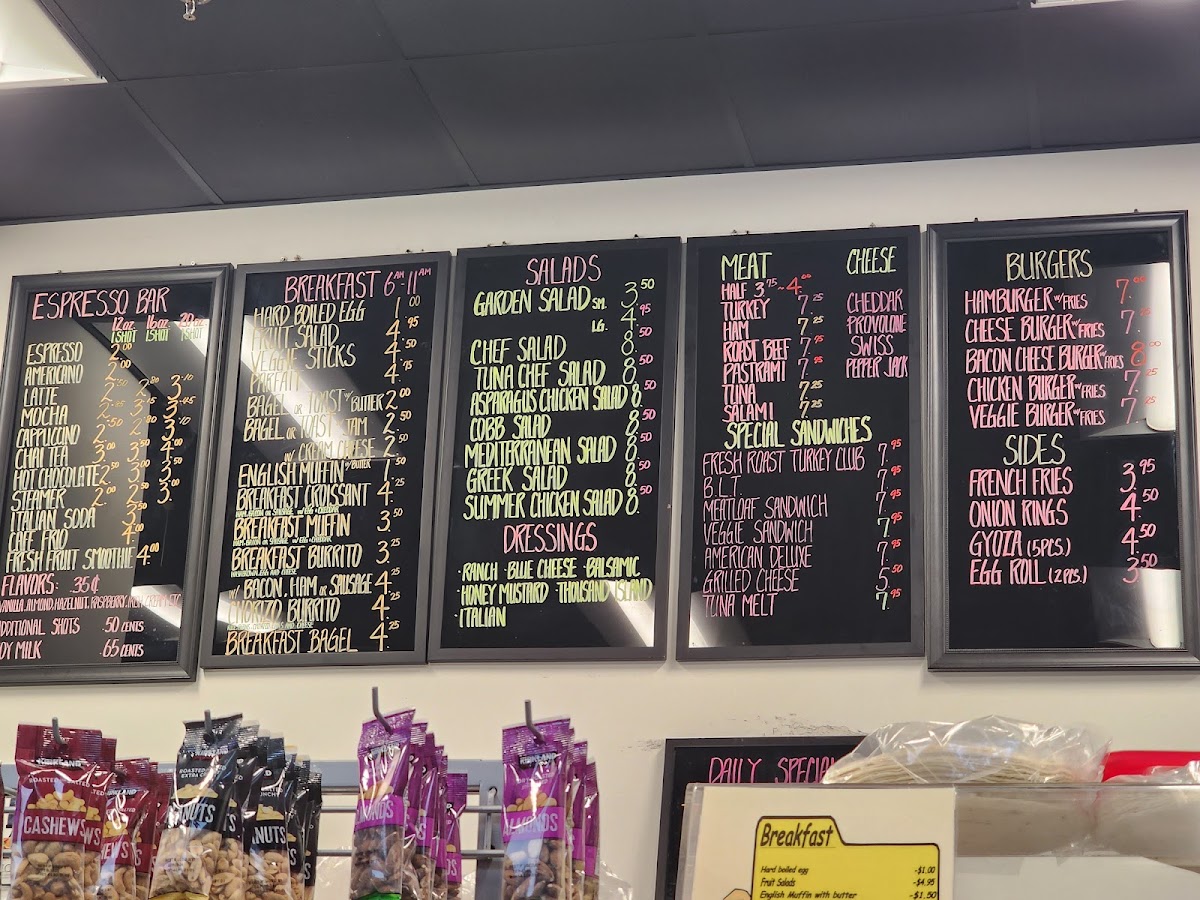 ESPRESSO BAR
12 oz. 16 oz. 20 oz.
1 SHOT 1 SHOT 1 SHOT
ESPRESSO 2.00
AMERICANO 2.00
LATTE 2.50 2.80 3.10
MOCHA
CAPPUCCINO
CHAI TEA
HOT CHOCOLATE
STEAMER
ITALIAN SODA
CAFE FRIO
FRESH FRUIT SMOOTHIE 4.00
FLAVORS: 35¢
VANILLA, ALMOND, HAZELNUT, RASPBERRY,
ADDITIONAL SHOTS .50 CENTS
MILK .65 CENTS
BREAKFAST 6AM-11AM
HARD BOILED EGG 1.00
FRUIT SALAD 4.95
VEGGIE STICKS 4.50
PARFAIT 4.75
BAGEL OR TOAST W/ BUTTER 2.00
BAGEL OR TOAST W/ JAM 2.50
W/ CREAM CHEESE 2.50
ENGLISH MUFFIN W/ BUTTER 1.50
BREAKFAST CROISSANT 4.25
HAM, BACON OR SAUSAGE W/ EGG & CHEDDAR
BREAKFAST MUFFIN 3.50
HAM, BACON OR SAUSAGE W/ EGG & CHEDDAR
BREAKFAST BURRITO 3.25
HASHBROWN, EGG AND CHEESE
W/ BACON, HAM OR SAUSAGE 4.25
CHORIZO BURRITO 4.25
BREAKFAST BAGEL 4.25
SALADS
GARDEN SALAD SM. 3.50
LG. 4.95
CHEF SALAD 8.50
TUNA CHEF SALAD 8.50
ASPARAGUS CHICKEN SALAD 8.50
COBB SALAD 8.50
MEDITERRANEAN SALAD 8.50
GREEK SALAD 8.50
SUMMER CHICKEN SALAD 8.50
DRESSINGS
· RANCH · BLUE CHEESE · BALSAMIC
· HONEY MUSTARD · THOUSAND ISLAND
· ITALIAN
MEAT
HALF 3.75 ~ 4.00
TURKEY 7.25
HAM 7.25
ROAST BEEF 7.95
PASTRAMI 7.95
TUNA 7.25
SALAMI 7.25
CHEESE
CHEDDAR
PROVOLONE
SWISS
PEPPER JACK
SPECIAL SANDWICHES
FRESH ROAST TURKEY CLUB 7.95
B.L.T. 7.95
MEATLOAF SANDWICH 7.95
VEGGIE SANDWICH 7.95
AMERICAN DELUXE 7.95
GRILLED CHEESE 5.50
TUNA MELT 7.95
BURGERS
HAMBURGER W/FRIES 7.00
CHEESE BURGER W/FRIES 7.
BACON CHEESE BURGER W/FRIES 8.00
CHICKEN BURGER W/FRIES 7.25
VEGGIE BURGER W/FRIES 7.25
SIDES
FRENCH FRIES 3.95
ONION RINGS 4.50
GYOZA (5PCS.) 4.50
EGG ROLL (2PCS.) 3.50
KIRKLAND
CASHEWS
NUTS
ALMONDS
ALMONDS
DAILY SPECIAL
Breakfast
Hard boiled egg -$1.00
Fruit Salads -$4.95
English Muffin with butter -$1.50